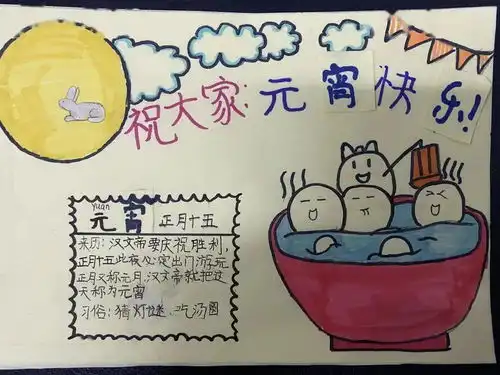 祝大家:元宵快乐!
yuan
元宵 正月十五
来历:汉文帝要庆祝胜利,
正月十五此夜必定出门游玩
正月又称元月,汉文帝就把这
天称为元宵
习俗:猜灯谜、吃汤圆